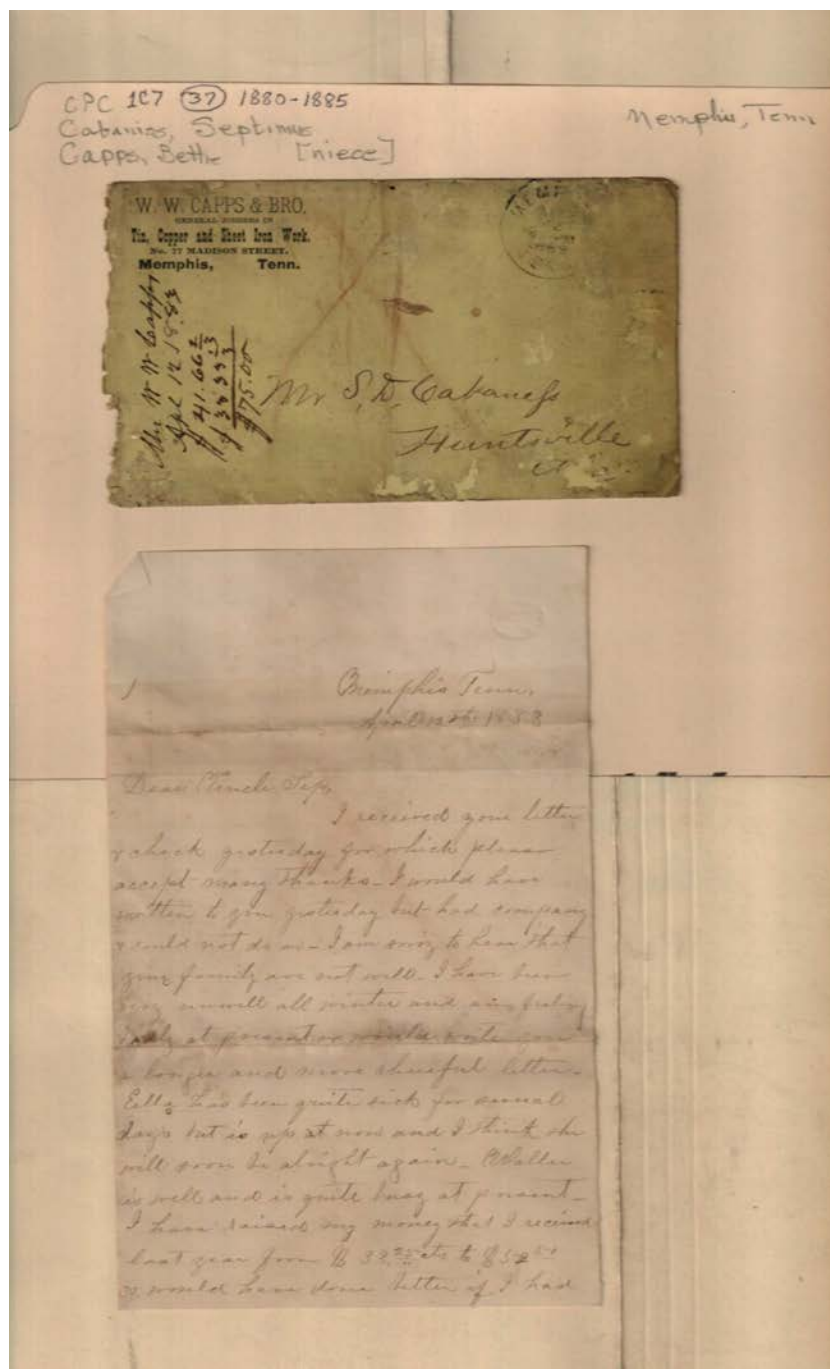 CPC 1C7 (37) 1880-1885
Cabaniss, Septimus
Capps, Bettie [niece]
Memphis, Tenn
W. W. CAPPS & BRO.
GENERAL JOBBERS IN
Tin, Copper and Sheet Iron Work.
No. 77 MADISON STREET.
Memphis, Tenn.
Mrs W W Capps
Apl 12 1883
$75.00
Mr S. D. Cabaness
Huntsville
1
Memphis Tenn.
April 12th 1883
Dear Uncle Sep,
I received your letter
& check yesterday for which please
accept many thanks - I would have
written to you yesterday but had company
& could not do so - I am sorry to hear that
your family are not well - I have been
very unwell all winter and am feeling
badly at present or would write you
a longer and more cheerful letter -
Ella has been quite sick for several
days but is up at now and I think she
will soon be alright again - Walter
is well and is quite busy at present -
I have raised my money that I received
last year from $ 33 cts to $
& would have done better if I had